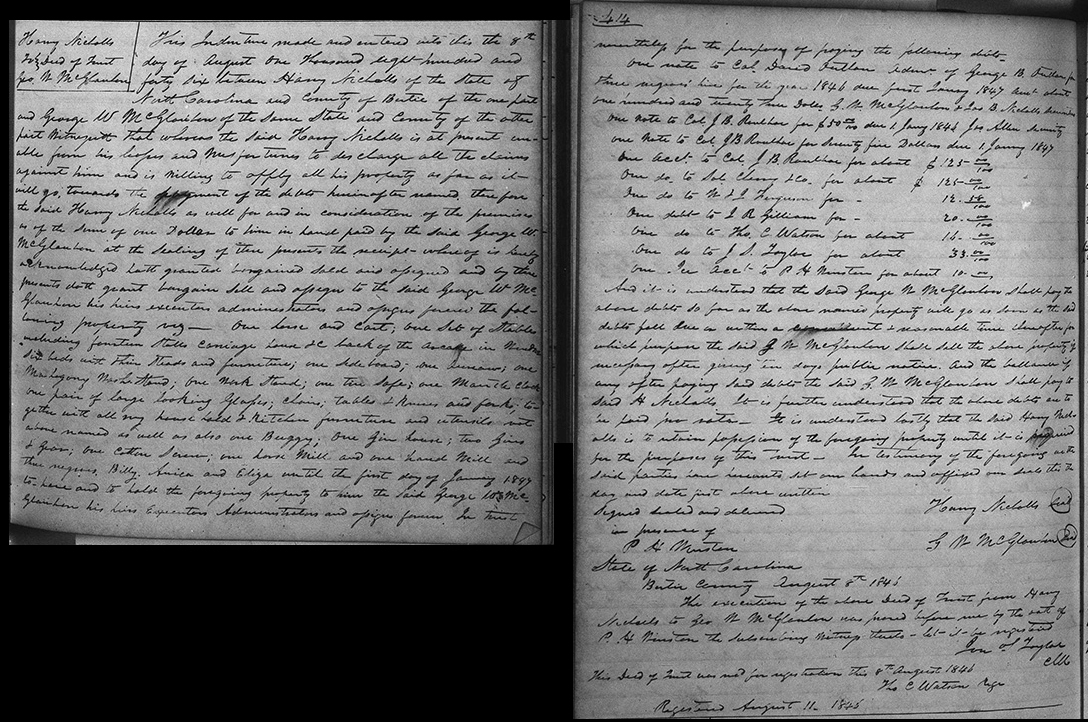 Harry Nicholls
To } Deed of Trust
Geo W McGlauhon
This Indenture made and entered into this the 8th
day of August One Thousand Eight hundred and
forty six between Harry Nicholls of the State of
North Carolina and County of Bertie of the one part
and George W McGlauhon of the same State and County of the other
part Witnesseth that whereas the said Harry Nicholls is at present un-
able from his losses and Misfortunes to discharge all the claims
against him and is willing to apply all his property as far as it
will go, towards the payment of the debts hereinafter named, therefore
the said Harry Nicholls as well for and in consideration of the premises
as of the sum of one Dollar to him in hand paid by the said George W
McGlauhon at the sealing of these presents the receipt whereof is hereby
acknowledged hath granted bargained sold and assigned and by these
presents doth grant bargain sell and assign to the said George W Mc-
Glauhon his heirs executors administrators and assigns forever the fol-
lowing property viz — One horse and Cart; one Set of Stables
including fourteen stalls Carriage house &C back of the in Windsor
Six beds with their Steads and furniture; one sideboard; one bureau; one
Mahogony Washstand; one Work Stand; one tin Safe; one Mantle Clock
one pair of large looking Glasses; chairs; tables & knives and forks; to-
gether with all my house hold & Kitchen furniture and utensils not
above named as well as also one Buggy; One Gin house; two Gins
& Gear; one Cotton Screw; one horse Mill and one hand Mill and
three negroes, Billy, Anica and Eliza until the first day of January 1847
to have and to hold the foregoing property to him the said George W Mc
Glauhon his heirs Executors Administrators and assigns forever. In trust
414
nevertheless for the purpose of paying the following debts
One note to Col. David Outlaw Admr. of George B. Outlaw for
three negroes hire for the year 1846 due first January 1847 amt about
one hundred and twenty three Dolls G. W McGlauhon & Jas B Nicholls securities
One note to Col J B Rouлhac for $50 00/100 due 1 Jany 1846 Jas Allen Security
One Note to Col JB Roulhac for Seventy five Dollars due 1 January 1847
One Acct to Col J. B Roulhac for about $ 125 00/100
One do. to Sol Cherry & Co. for about $ 125 00/100
One do to W & J Ferguson for - 12.
One debt to J R Gilliam for - 20. 00/100
One do to Tho. C Watson for about 16. 00/100
One do to J. S. Taylor for about 33. 00/100
One acct to P. H Winston for about 10. 00/100
And it is understood that the Said George W McGlauhon shall pay the
above debts so far as the above named property will go as soon as the said
debts fall due or within a convenient & reasonable time thereafter for
which purpose the said G W McGlauhon shall sell the above property if
necessary after giving ten days public notice, And the ballance if
any after paying said debts the said G W McGlauhon shall pay to
said H Nicholls It is further understood that the above debts are to
be paid pro rata — It is understood lastly that the said Harry Nich-
olls is to retain possession of the foregoing property until it is required
for the purposes of this trust — In testimony of the foregoing as the
said parties have hereunto set our hands and affixed our seals this the
day and date just above written
Signed sealed and delivered
in presence of
P H Winston
Harry Nicholls Seal
G W McGlauhon Seal
State of North Carolina
Bertie County August 8th 1846
The execution of the above Deed of Trust from Harry
Nicholls to Geo W McGlauhon was proved before me by the oath of
P. H Winston the Subscribing Witness thereto — Let it be registered
Jon S Taylor
Clk
This Deed of Trust was recd for registration this 8th August 1846
Tho C Watson Regr
Registered August 11 1846